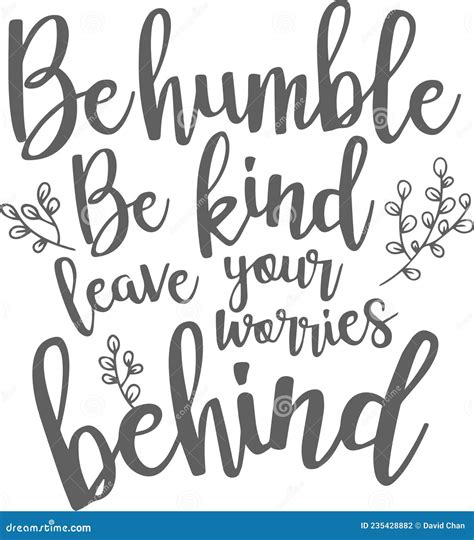 Be humble
Be kind
leave your
worries
behind
dreamstime.com
ID 235428882 © David Chan